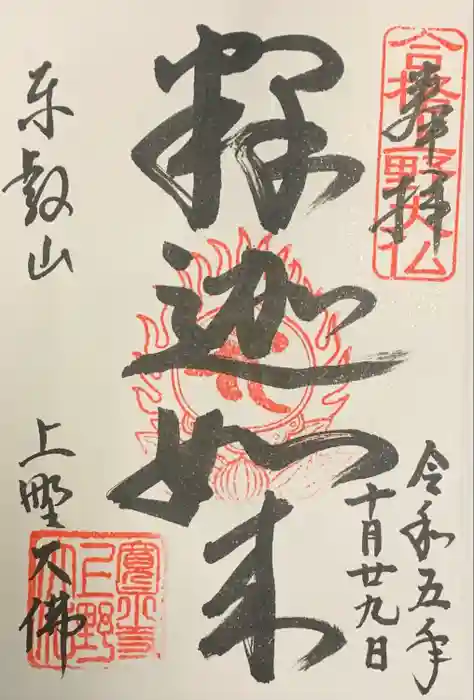 奉拝
令和五年
十月廿九日
釋迦如来
东叡山
上野大佛
合格野大仏
寛永寺
上野